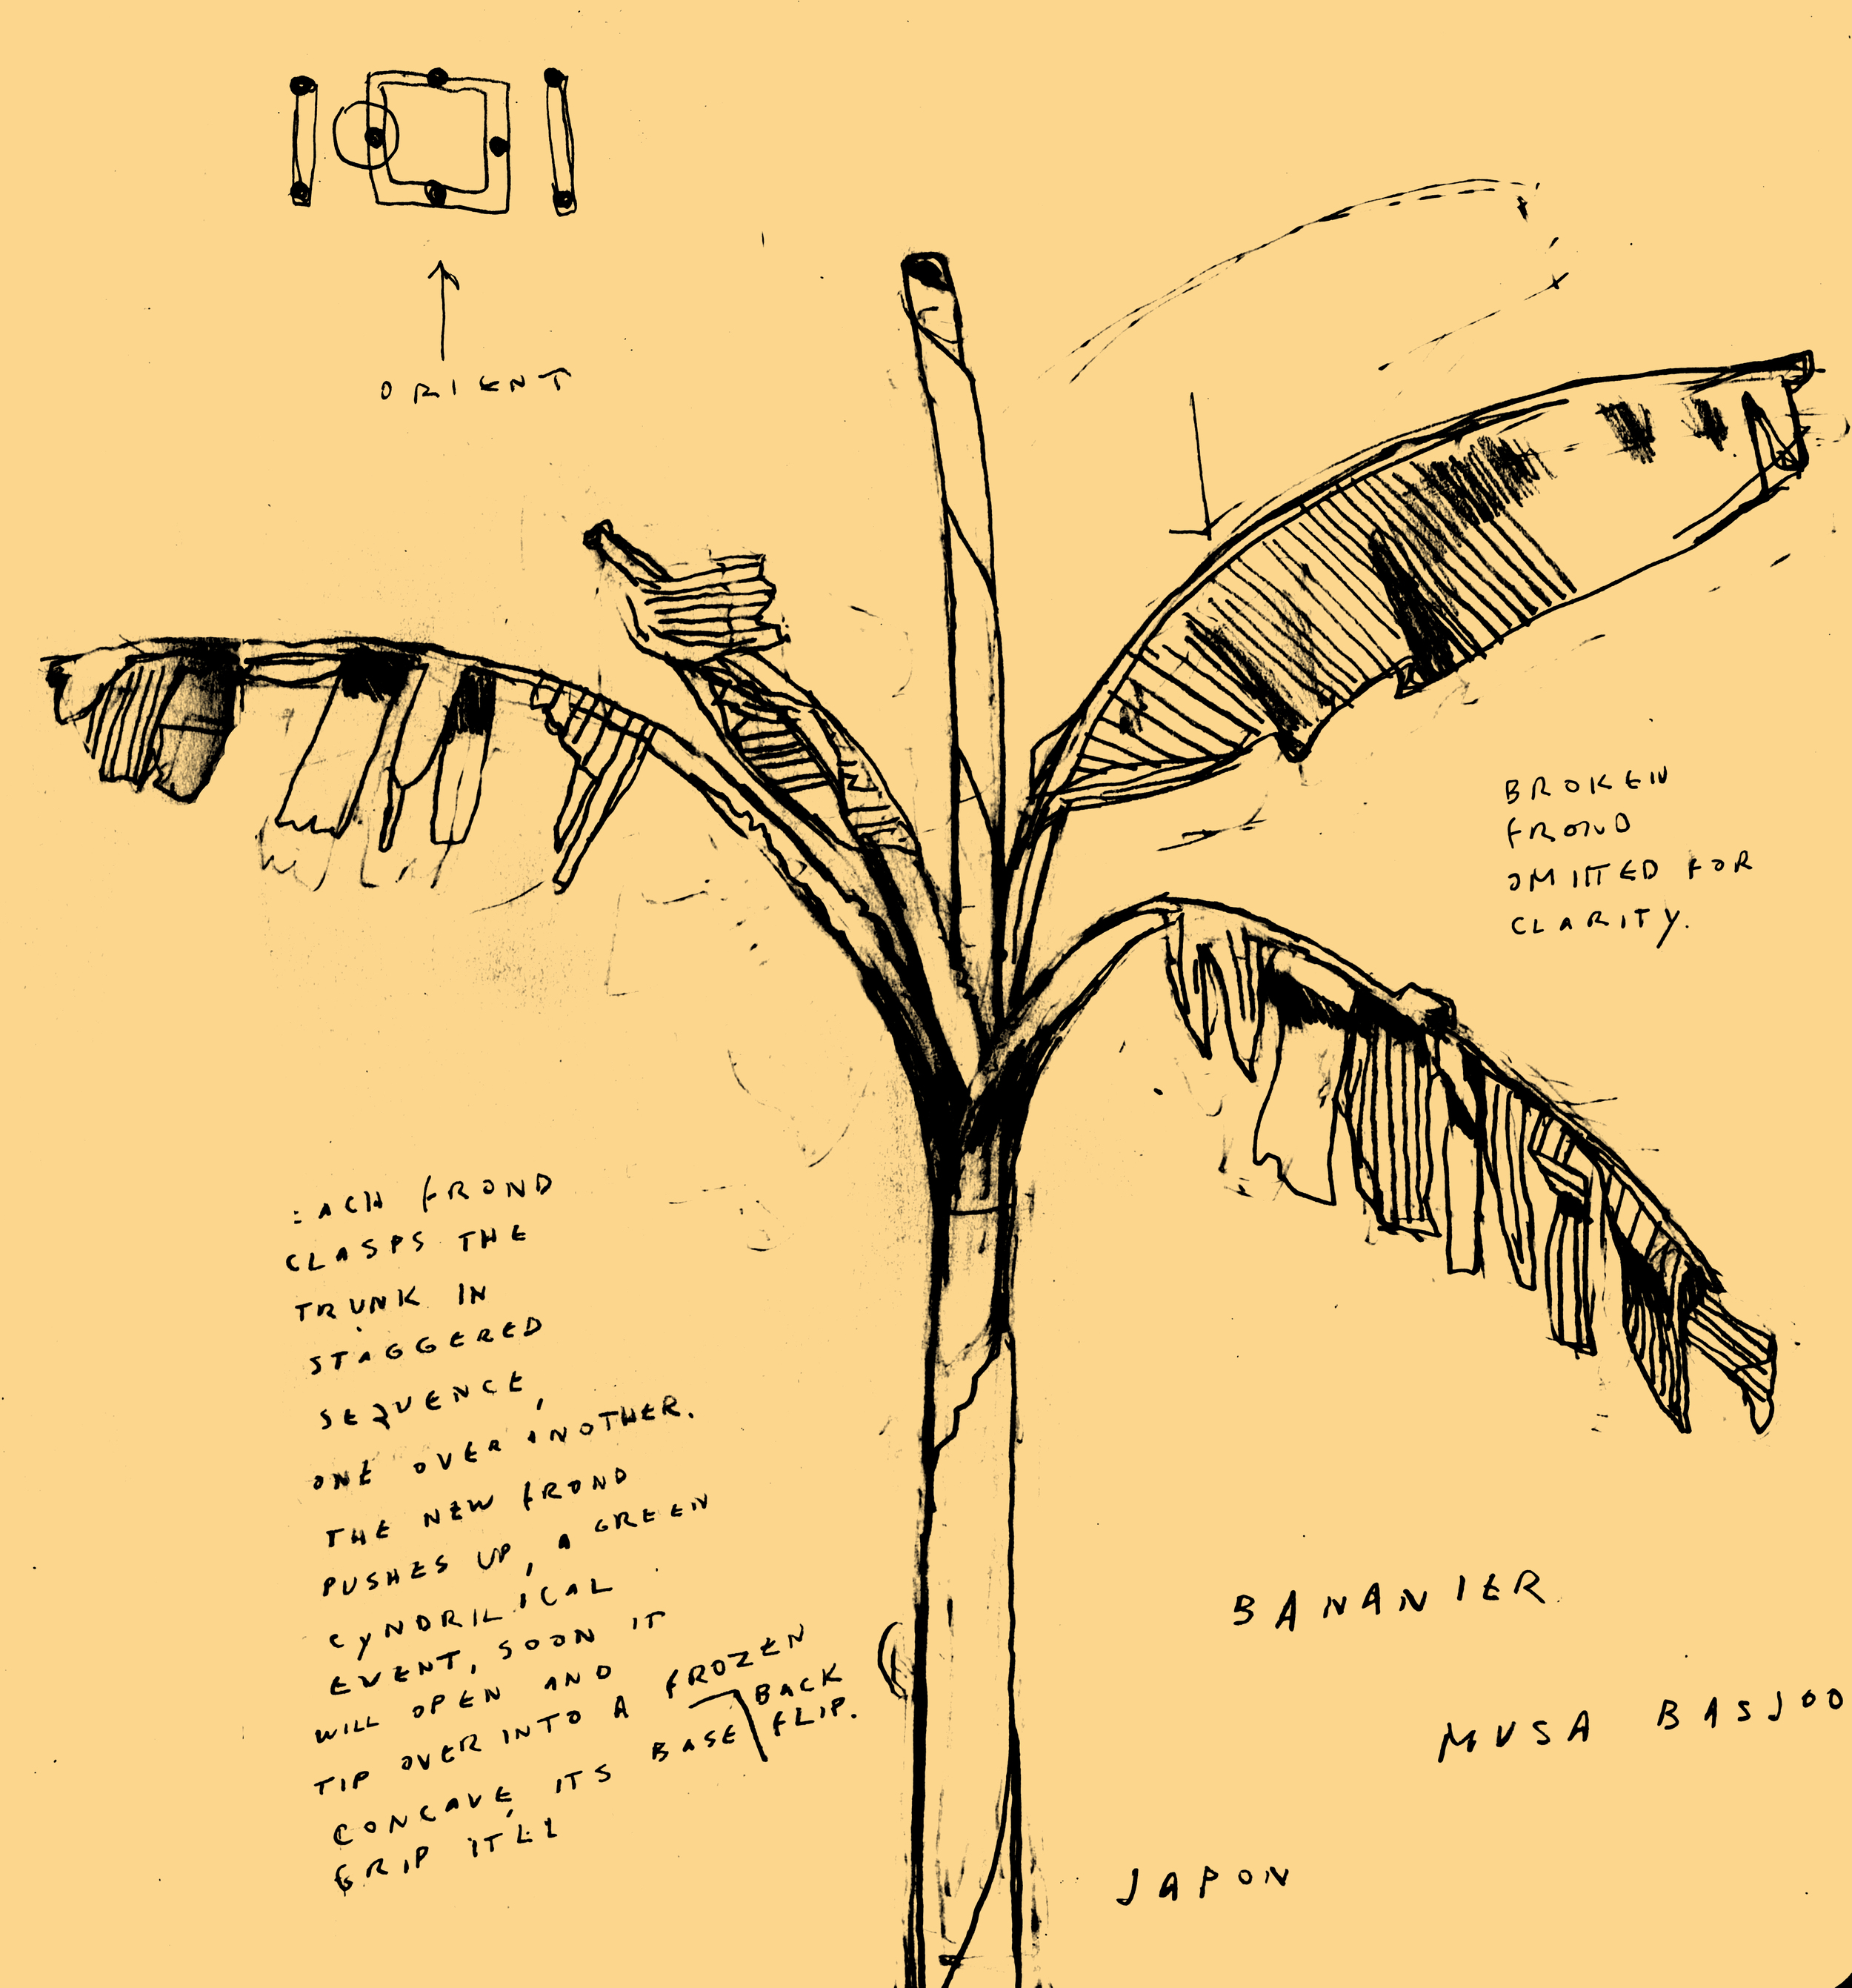 ORIENT
BROKEN
FROND
OMITTED FOR
CLARITY.
EACH FROND
CLASPS THE
TRUNK IN
STAGGERED
SEQUENCE,
ONE OVER ANOTHER.
THE NEW FROND
PUSHES UP, A GREEN
CYNDRILICAL
EVENT, SOON IT
WILL OPEN AND
TIP OVER INTO A FROZEN
BACK
FLIP.
CONCAVE, ITS BASE
GRIP ITLL
BANANIER
MUSA BASJOO
JAPON